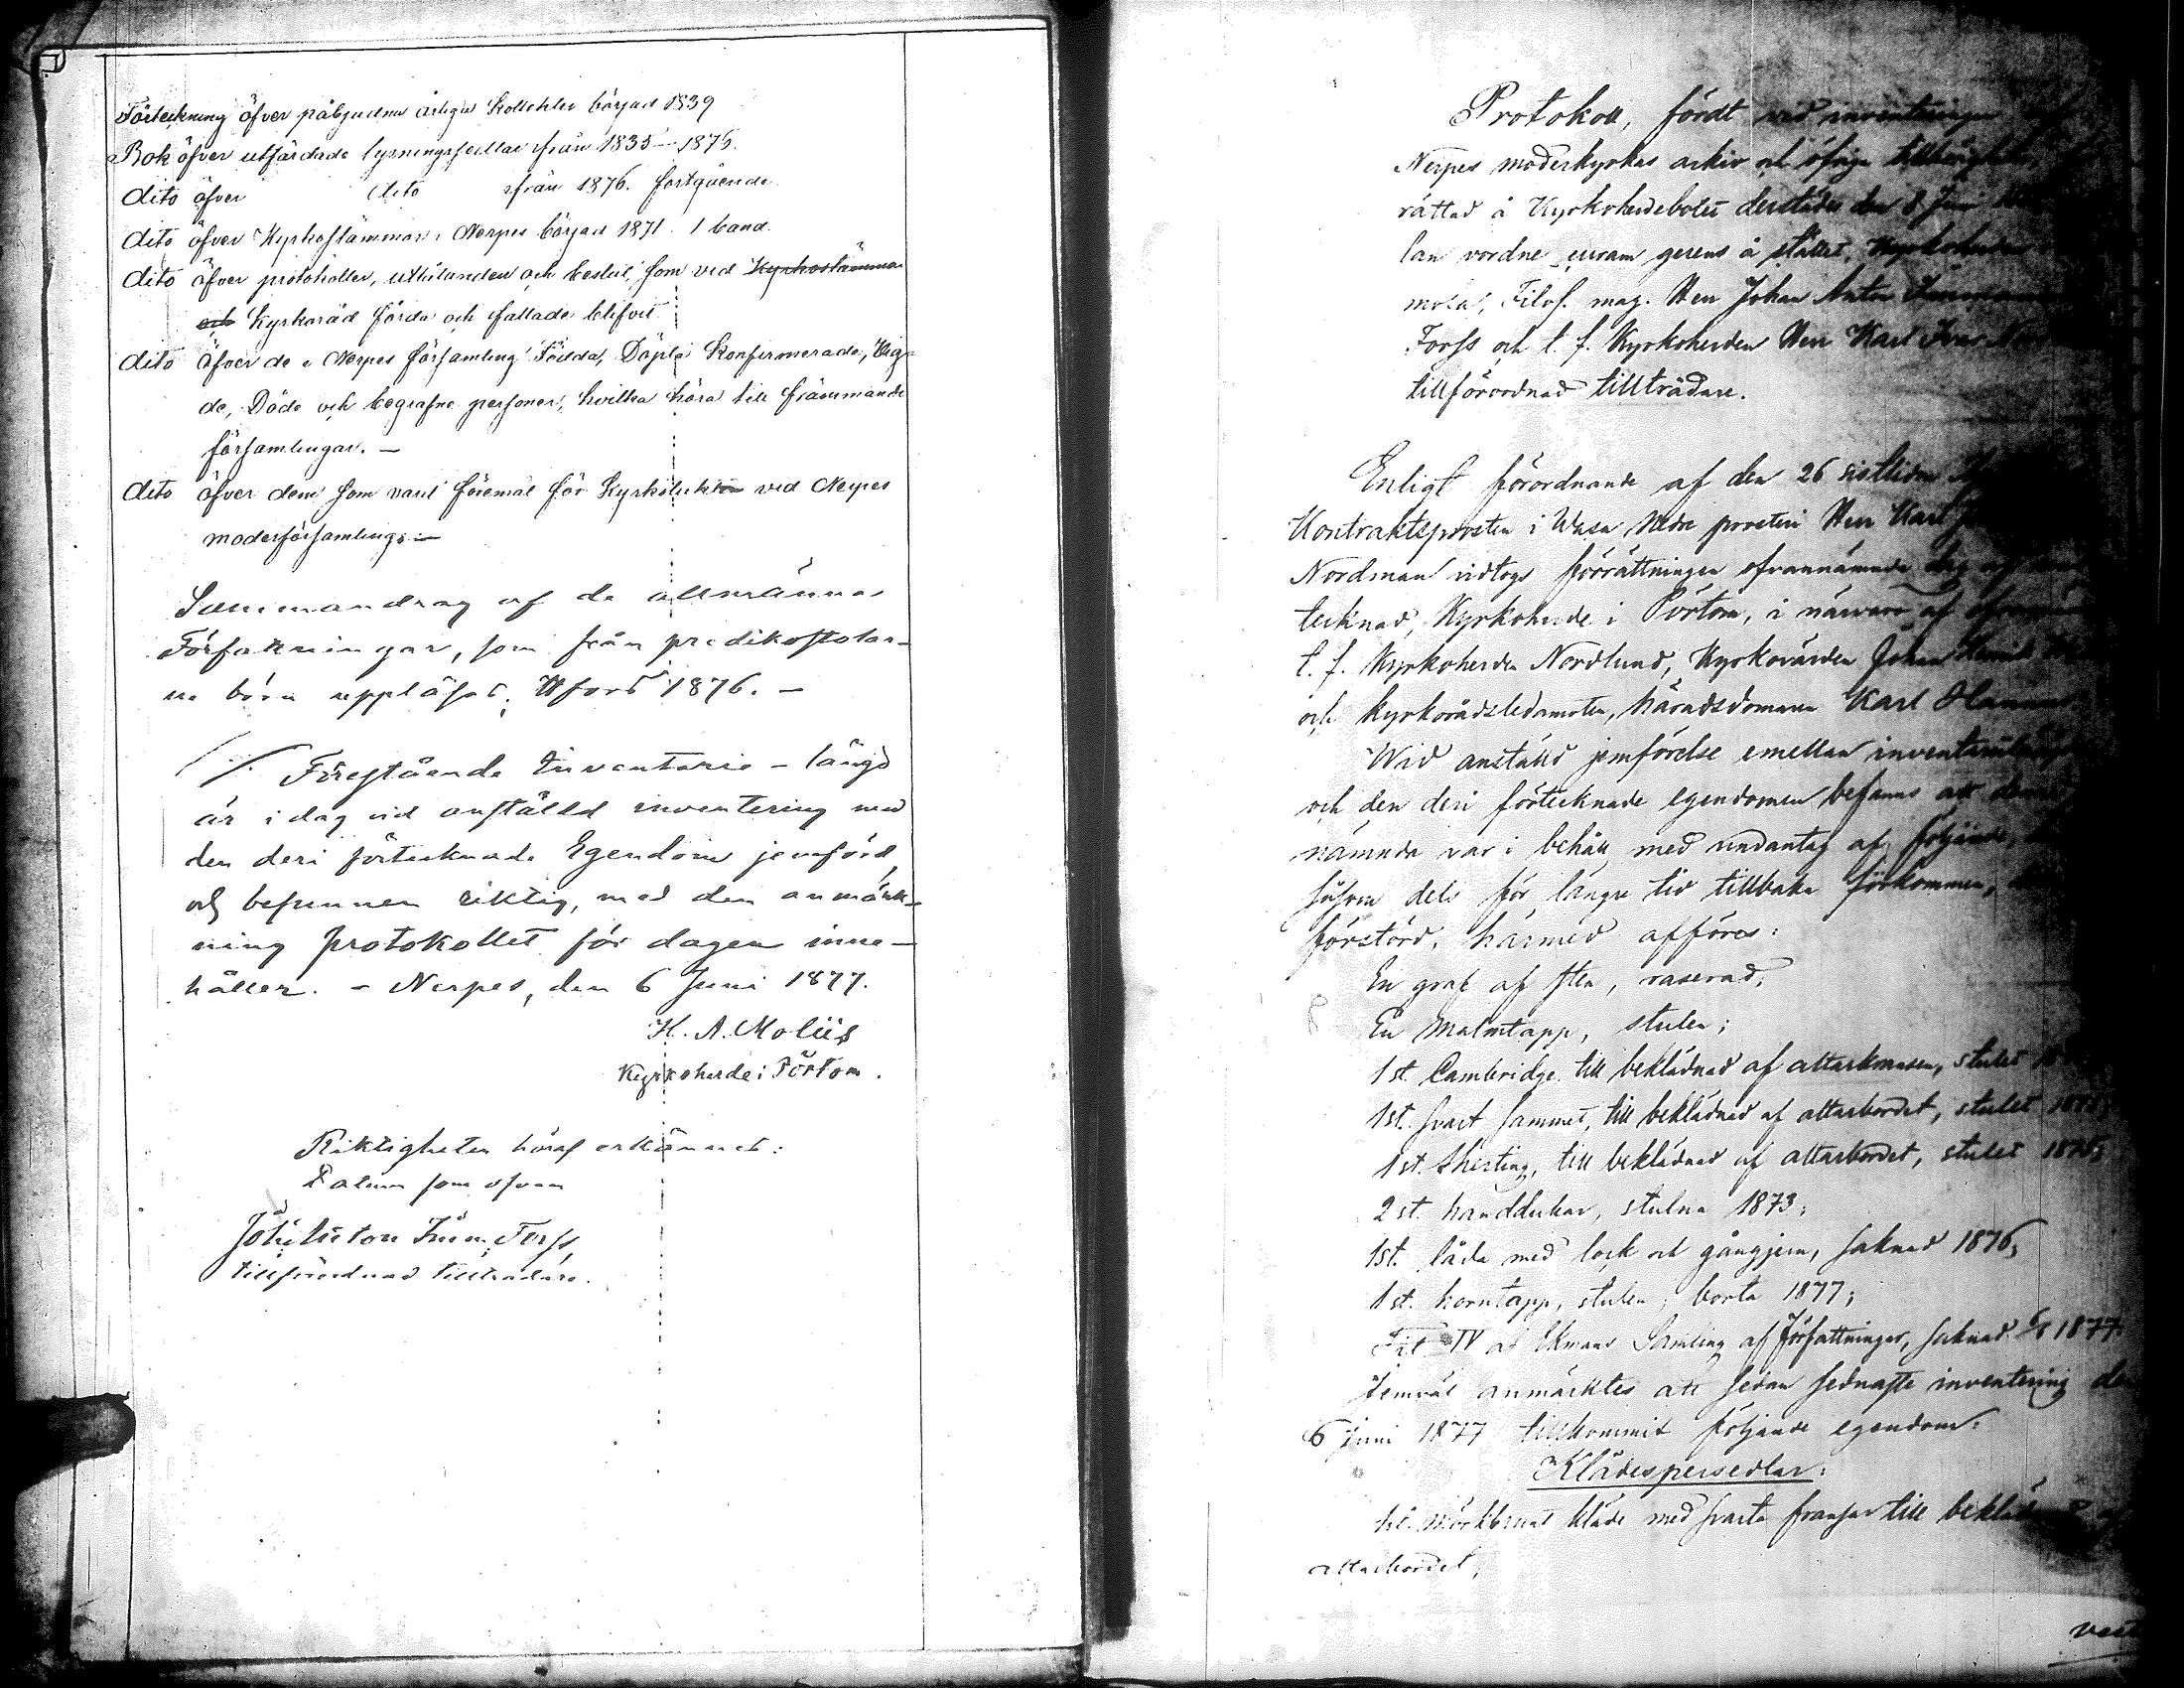 Förteckning öfver påbjudna årliga Kollekter börjad 1839
Bok öfver utfärdade lysningssedlar från 1835-1876.
dito öfver dito från 1876. fortgående
dito öfver Kyrkostämmor i Nerpes börjad 1871. 1 band.
dito öfver protokoller, utlåtanden och beslut, som vid Kyrkostämma
och Kyrkoråd förda och fattade blifvit
dito öfver de i Nerpes församling Födda, Döpta Konfirmerade, Vig-
de, Döde och begrafne personer, hvilka höra till främmande
församlingar. —
dito öfver dem som varit föremål för Kyrkotukt vid Nerpes
moderförsamling. —
Sammandrag af de allmänna
Författningar, som från predikostolar-
ne böra uppläsas. H:fors 1876. —
Förestående Inventarie-längd
är i dag vid anställd inventering med
den deri förtecknade Egendom jemförd,
och befunnen riktig, med den anmärk-
ning protokollet för dagen inne-
håller. - Nerpes, den 6 Juni 1877.
K. A. Moliis
Kyrkoherde i Pörtom.
Riktigheten häraf erkännes:
Datum som ofvan
Joh: Anton Imm: Forss,
tillförordnad tillträdare.
Protokoll, fördt vid inventeringen
Nerpes moderkyrkas arkiv och öfriga
rättad å Kyrkoherdebolet derstädes den 8 Juni
lan vordne curam gerens å stället, Kyrkoherden
Filos. mag. Herr Johan Anton
Forss och t. f. Kyrkoherden Herr Karl Ivar
tillförordnad tillträdare.
Enligt förordnande af den 26 sistlidne
Kontraktsprosten i Wasa Nedre prosteri Herr Karl
Nordman vidtogs förrättningen ofvannämnde dag
tecknad, Kyrkoherde i Pörtom, i närvaro af
t. f. Kyrkoherden Nordlund, Kyrkovärden Johan
och kyrkorådsledamoten, häradsdomaren Karl
Wid anställd jemförelse emellan
och den deri förtecknade egendomen befanns att
nämnda var i behåll med undantag af följande,
såsom dels för längre tid tillbaka förkommen,
förstörd, härmed afföres:
En graf af sten, raserad;
En Malmtapp, stulen;
1 st. Cambridge till beklädnad af altarkransen, stulet
1 st. svart sammet, till beklädnad af altarbordet, stulet
1 st. Sherting, till beklädnad af altarbordet, stulet
2 st. handdukar, stulna 1873;
1 st. låda med lock och gångjern, saknad 1876;
1 st. korntapp, stulen; borta 1877;
IV af Ekmans Samling af Författningar, saknad 1877.
Jemväl anmärktes att sedan sednaste inventering
6 Juni 1877 tillkommit följande egendom:
Klädespersedlar:
mörkbrunt kläde med svarta fransar till
altarbordet;